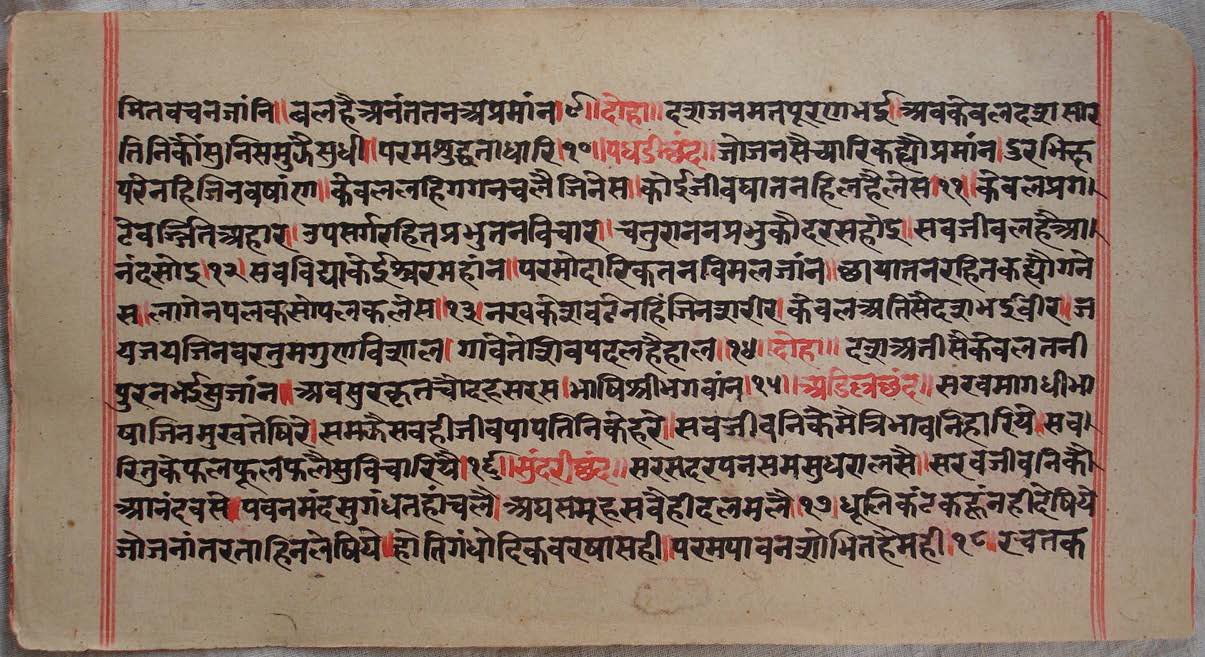 मितवचनजांनि॥ बलहैअनंततनअप्रमांन।९॥ दोहा॥ दशजनमतपूरणभई॥ अबकेवलदशसार
तिनिकौंसुनिसमुझैसुधी॥ परमशुद्धताधारि।१०॥ पधडीछंद॥ जोजनसैच्यारिकह्यौप्रमांन। दुरभिष्य
परेनहिजिनबषांण॥ केवललहिगगनचलैजिनेस॥ कोईजीवघातनहिलहैलेस॥११॥ केवलप्रग।
टेवर्ज्जितिअहार॥ उपसर्गरहितप्रभुतनविचार॥ चतुराननप्रभुकौदरसहोइ॥ सबजीवलहैआ।
नंदसोइ॥१२॥ सबविद्याकेईस्वरमहांन॥ परमोदारिकतनविमलजांन॥ छायातनरहितकह्यौगने
स॥ लागैनपलकसोपलकलेस॥१३॥ नखकेशबढैनहिंजिनशरीर। केवलअतिसैदशभईवीर॥ ज
यजयजिनवरतुमगुणविशाल॥ गावैतेशिवपदलहैहाल॥१४॥ दोहा॥ दशअतीसैकेवलतनी
पुरनभईसुजांन॥ अबसुरकृतचौदहसरस॥ भाषिश्रीभगवांन।१५॥ अडिल्लछंद॥ सरवमागधीभा
षाजिनमुखतेंषिरै। समझैसबहीजीवपापतिनिकेहरै। सबजीवनिकैमैत्रिभावनिहारियै॥ सब।
रितुकेफलफूलफलैसुविचारियै॥१६॥ सुंदरीछंद॥ सरसदरपनसमसुधरालसै॥ सरवजीवनिकौ
आनंदबसै॥ पवनमंदसुगंधतहांचलै॥ अघसमूहसबैहीदलमलै॥१७॥ धूलिकंटककहूंनहीदेषियै
जोजनांतरताहिनलेषियै॥ होतिगंधोदिकवरषासही॥ परमपावनशोभितहैमही॥१८॥ रचतक